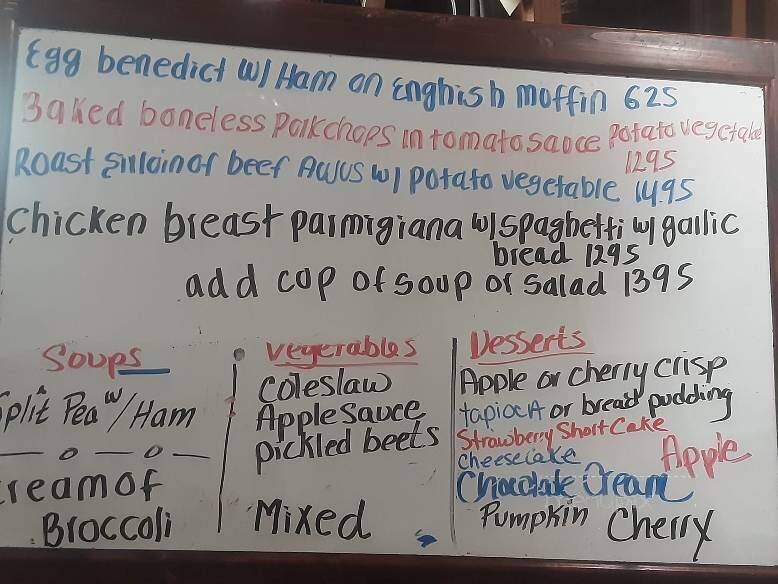 Egg benedict w/ Ham on Enghish moffin 625
Baked boneless porkchops in tomato sauce potato vegetable
1295
Roast sirloin of beef AuJUS w/ potato vegetable 1495
chicken breast parmigiana w/ spaghetti w/ garlic
bread 1295
add cop of soup or salad 1395
Soups
Split Pea w/ Ham
creamof
Broccoli
vegetables
coleslaw
Apple Sauce
pickled beets
Mixed
Desserts
Apple or cherry crisp
tapiocA or bread pudding
Strawberry Short Cake
cheesecake
Apple
Chocolate Cream
Pumpkin Cherry